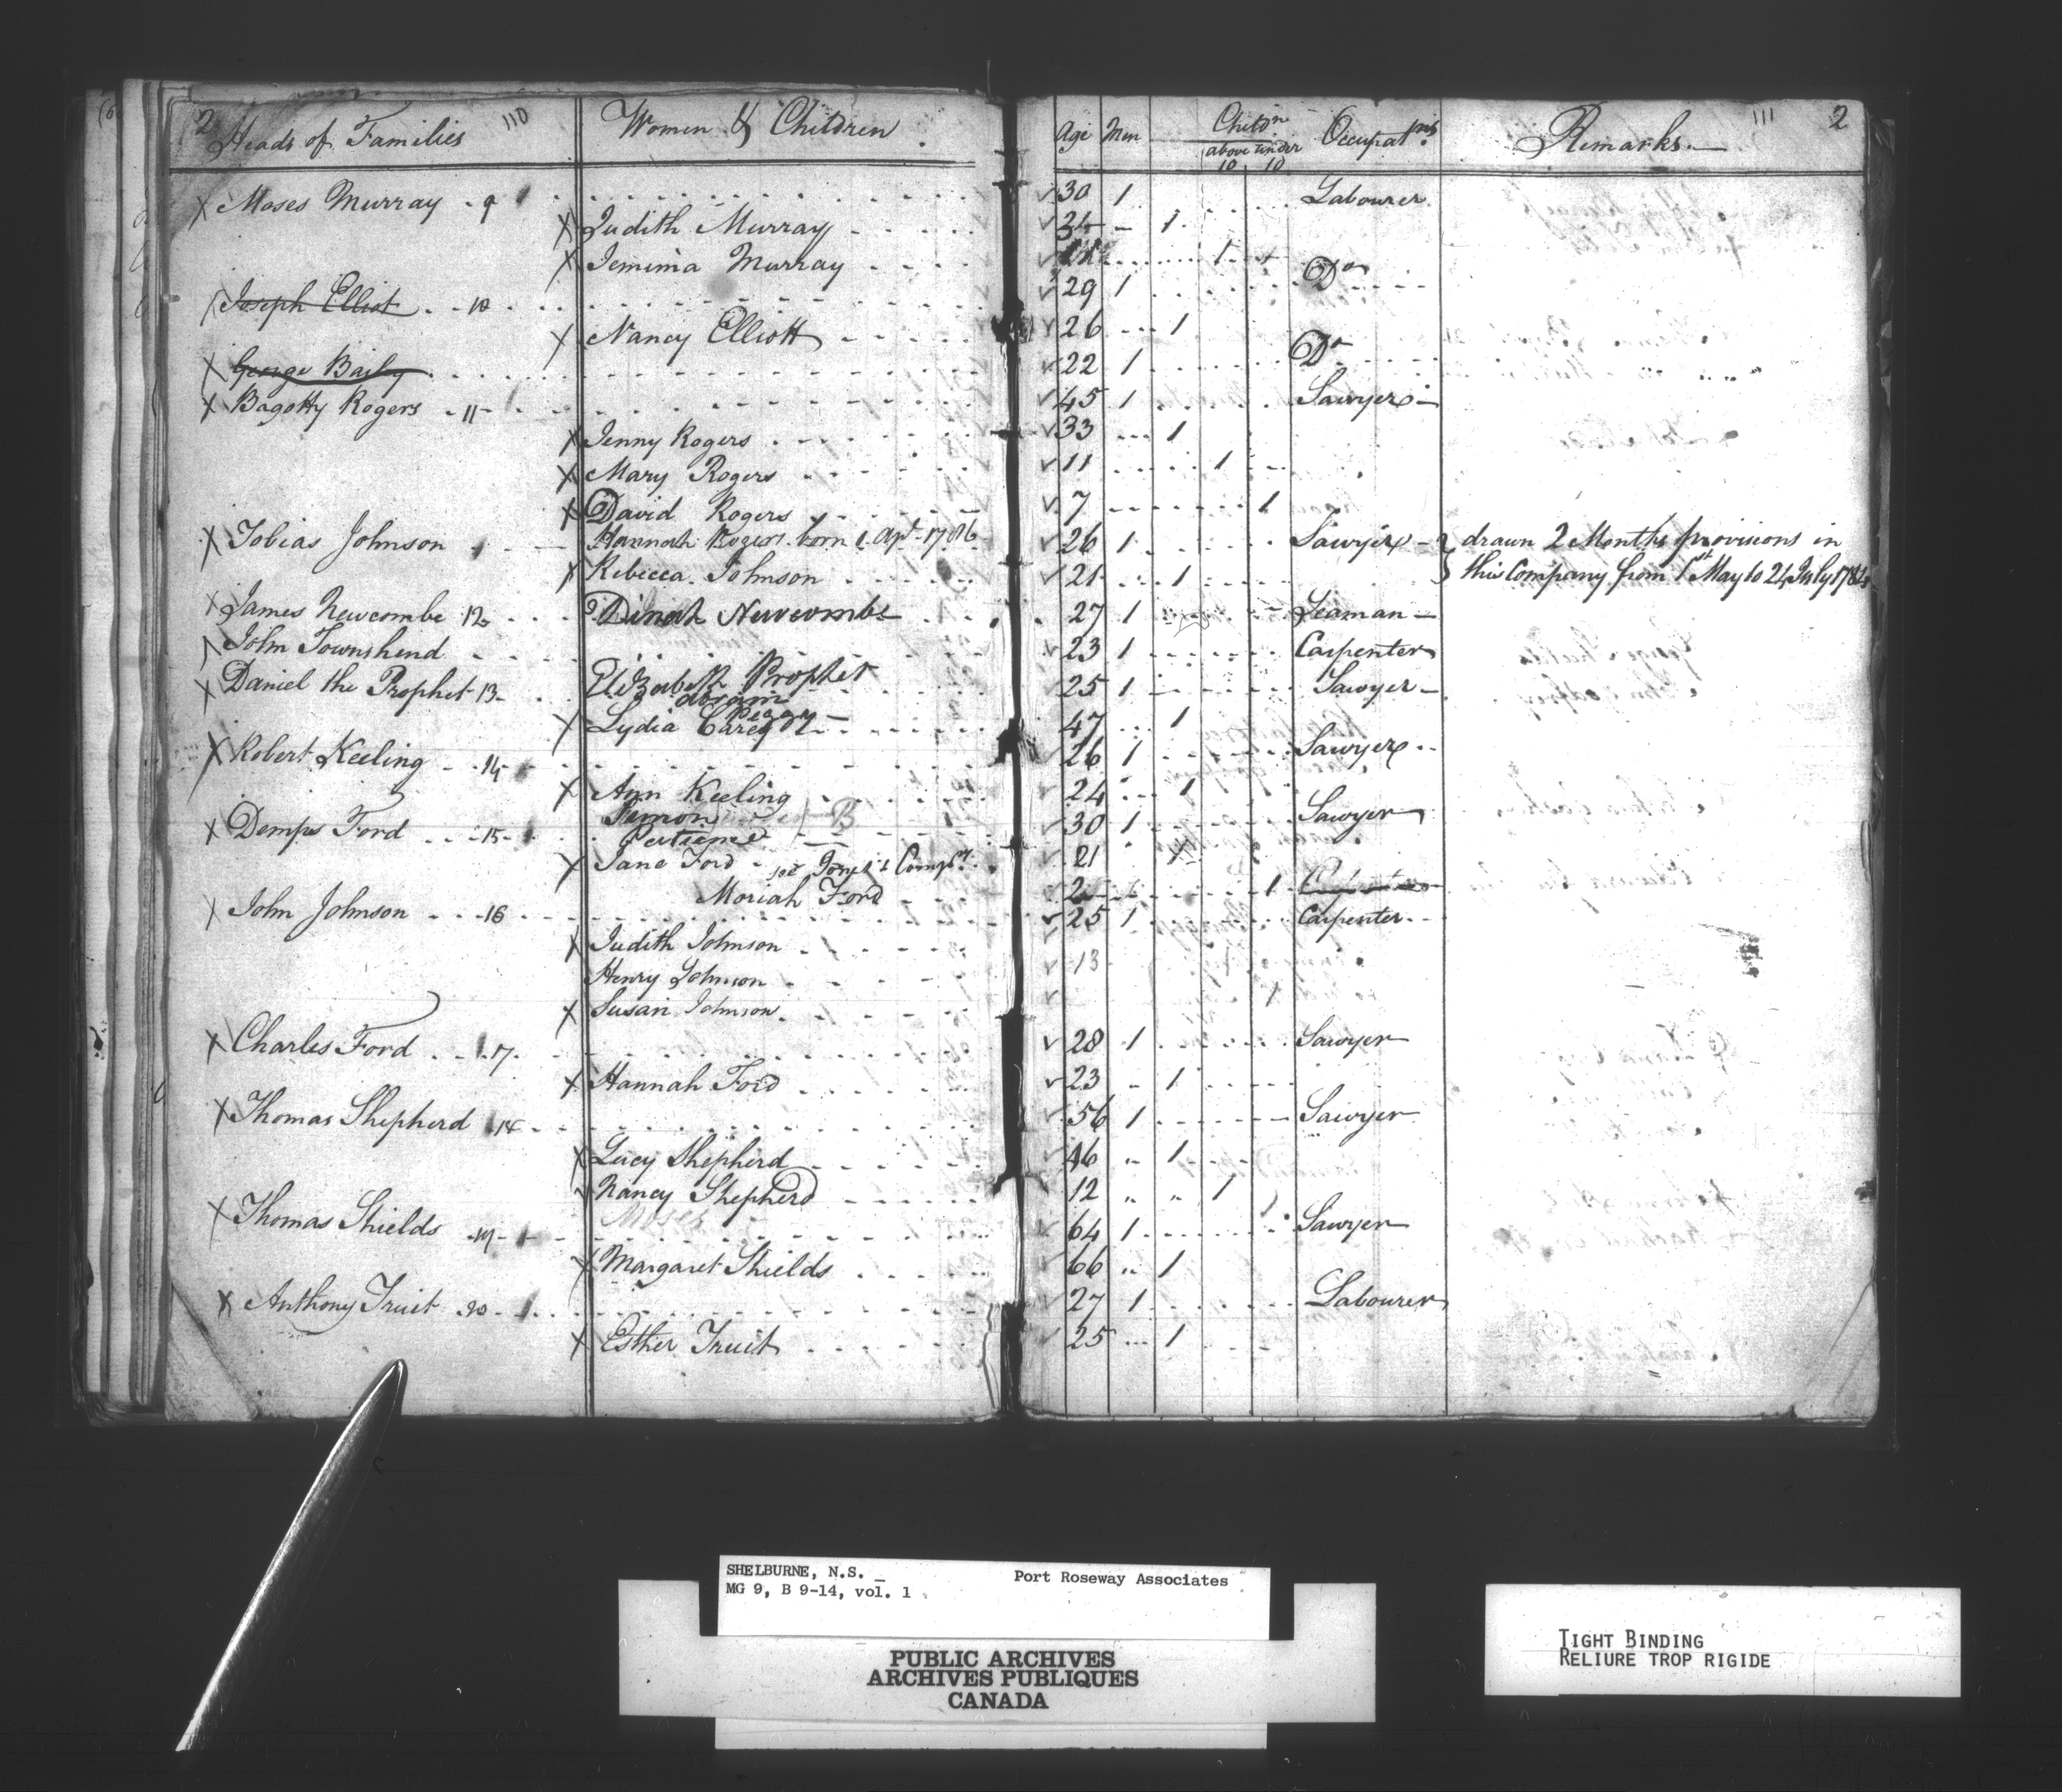 2 Heads of Families 110 Women & Children Age Men Childn above 10 under 10 Occupatns Remarks. 111 2
X Moses Murray 9 30 1 Labourer
X Judith Murray 1
X Jemima Murray 1
Joseph Elliot 10 29 1 Do
X Nancy Elliott 26 1
X George Bailey 22 1 Do
X Bagotty Rogers 11 45 1 Sawyer
X Jenny Rogers 33 1
X Mary Rogers 11 1
X David Rogers 7 1
Hannah Rogers born 1 Apl 1786
X Tobias Johnson 26 1 Sawyer drawn 2 Months provisions in
X Rebecca Johnson 21 1 this Company from 1st May to 24 July
X James Newcombe 12 Dinah Newcombe 27 1 Seaman
John Townshend 23 1 Carpenter
X Daniel the Prophet 13 Elizabeth Prophet 25 1 Sawyer
X Lydia Carey 47 1
Peggy
X Robert Keeling 14 26 1 Sawyer
X Ann Keeling 24 1
X Demps Ford 15 30 1 Sawyer
X Jane Ford 21
Moriah Ford 2 1
X John Johnson 16 25 1 Carpenter
X Judith Johnson
Henry Johnson 13
X Susan Johnson 1
X Charles Ford 17 28 1 Sawyer
X Hannah Ford 23 1
X Thomas Shepherd 56 1 Sawyer
X Lucy Shepherd 46 1
Nancy Shepherd 12 1
Moses
X Thomas Shields 19 64 1 Sawyer
X Margaret Shields 66 1
X Anthony Truit 20 27 1 Labourer
X Esther Truit 25 1
SHELBURNE, N.S. Port Roseway Associates
MG 9, B 9-14, vol. 1
PUBLIC ARCHIVES
ARCHIVES PUBLIQUES
CANADA
TIGHT BINDING
RELIURE TROP RIGIDE